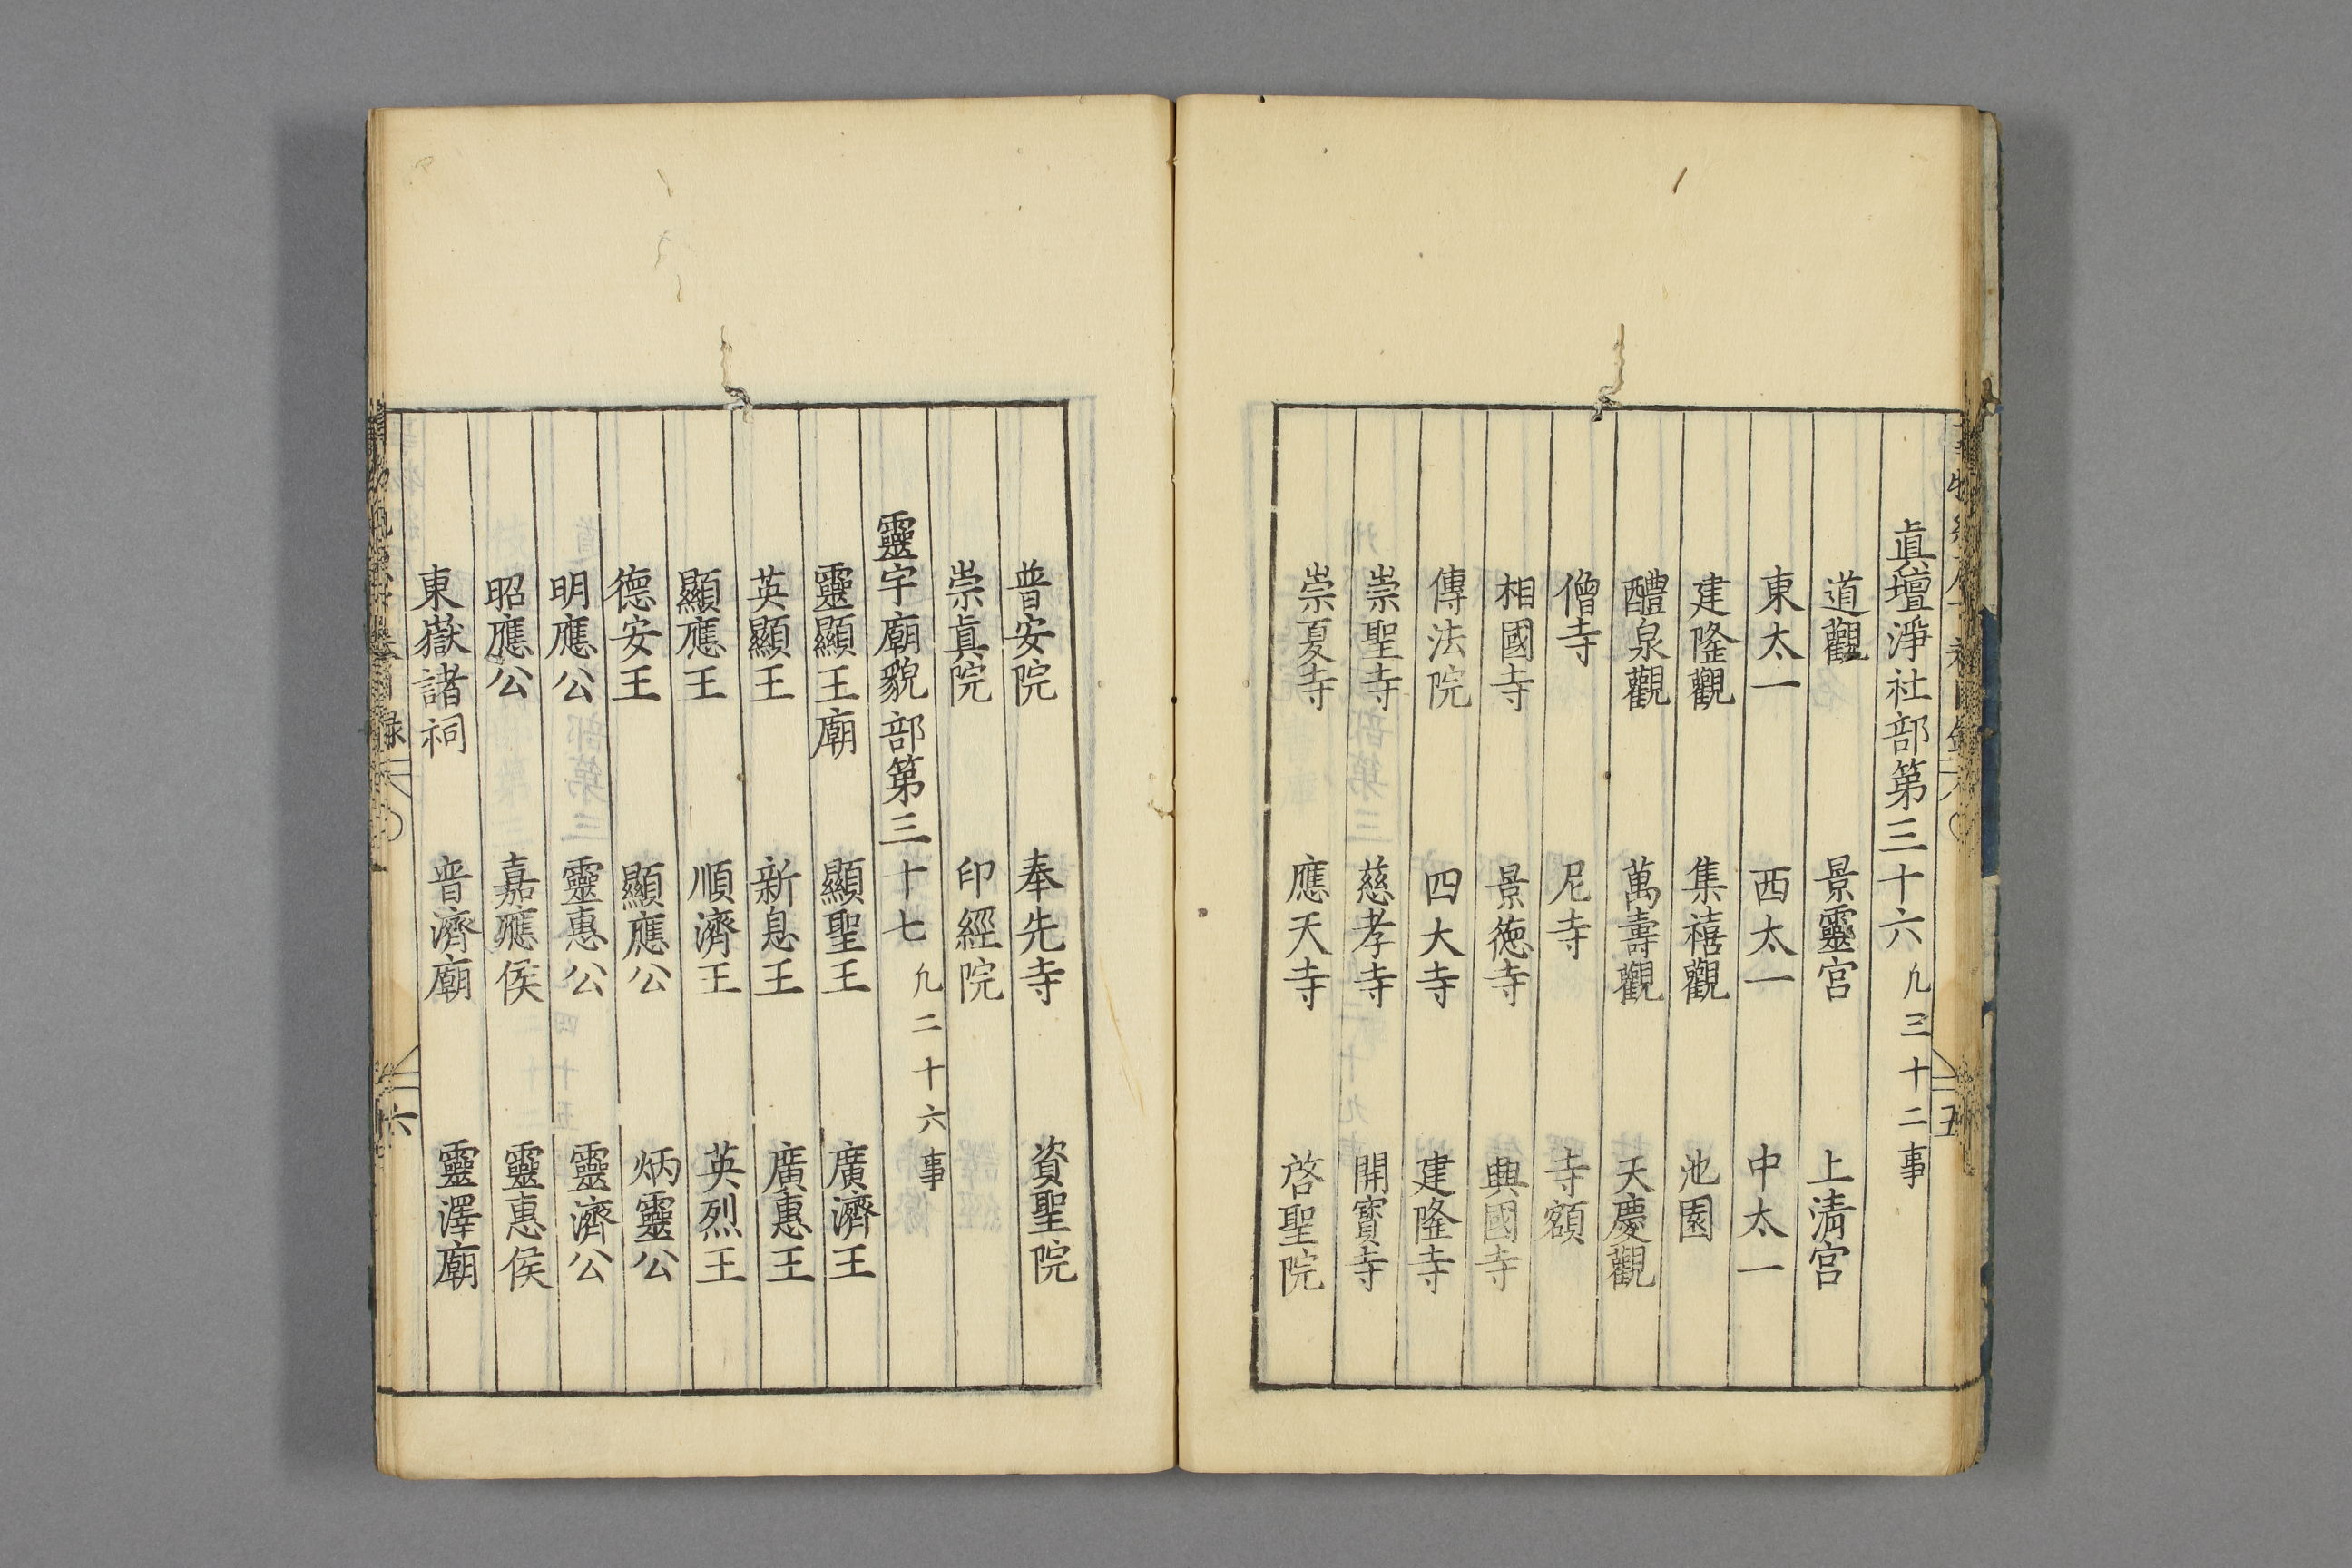 眞壇淨社部第三十六 凢三十二事
道觀 景靈宮 上清宮
東太一 西太一 中太一
建隆觀 集禧觀 池園
醴泉觀 萬壽觀 天慶觀
僧寺 尼寺 寺額
相國寺 景德寺 興國寺
傳法院 四大寺 建隆寺
崇聖寺 慈孝寺 開寳寺
崇夏寺 應天寺 啓聖院
普安院 奉先寺 資聖院
崇眞院 印經院
靈宇廟貌部第三十七 凢二十六事
靈顯王廟 顯聖王 廣濟王
英顯王 新息王 廣惠王
顯應王 順濟王 英烈王
德安王 顯應公 炳靈公
明應公 靈惠公 靈濟公
昭應公 嘉應侯 靈惠侯
東嶽諸祠 普濟廟 靈澤廟
六